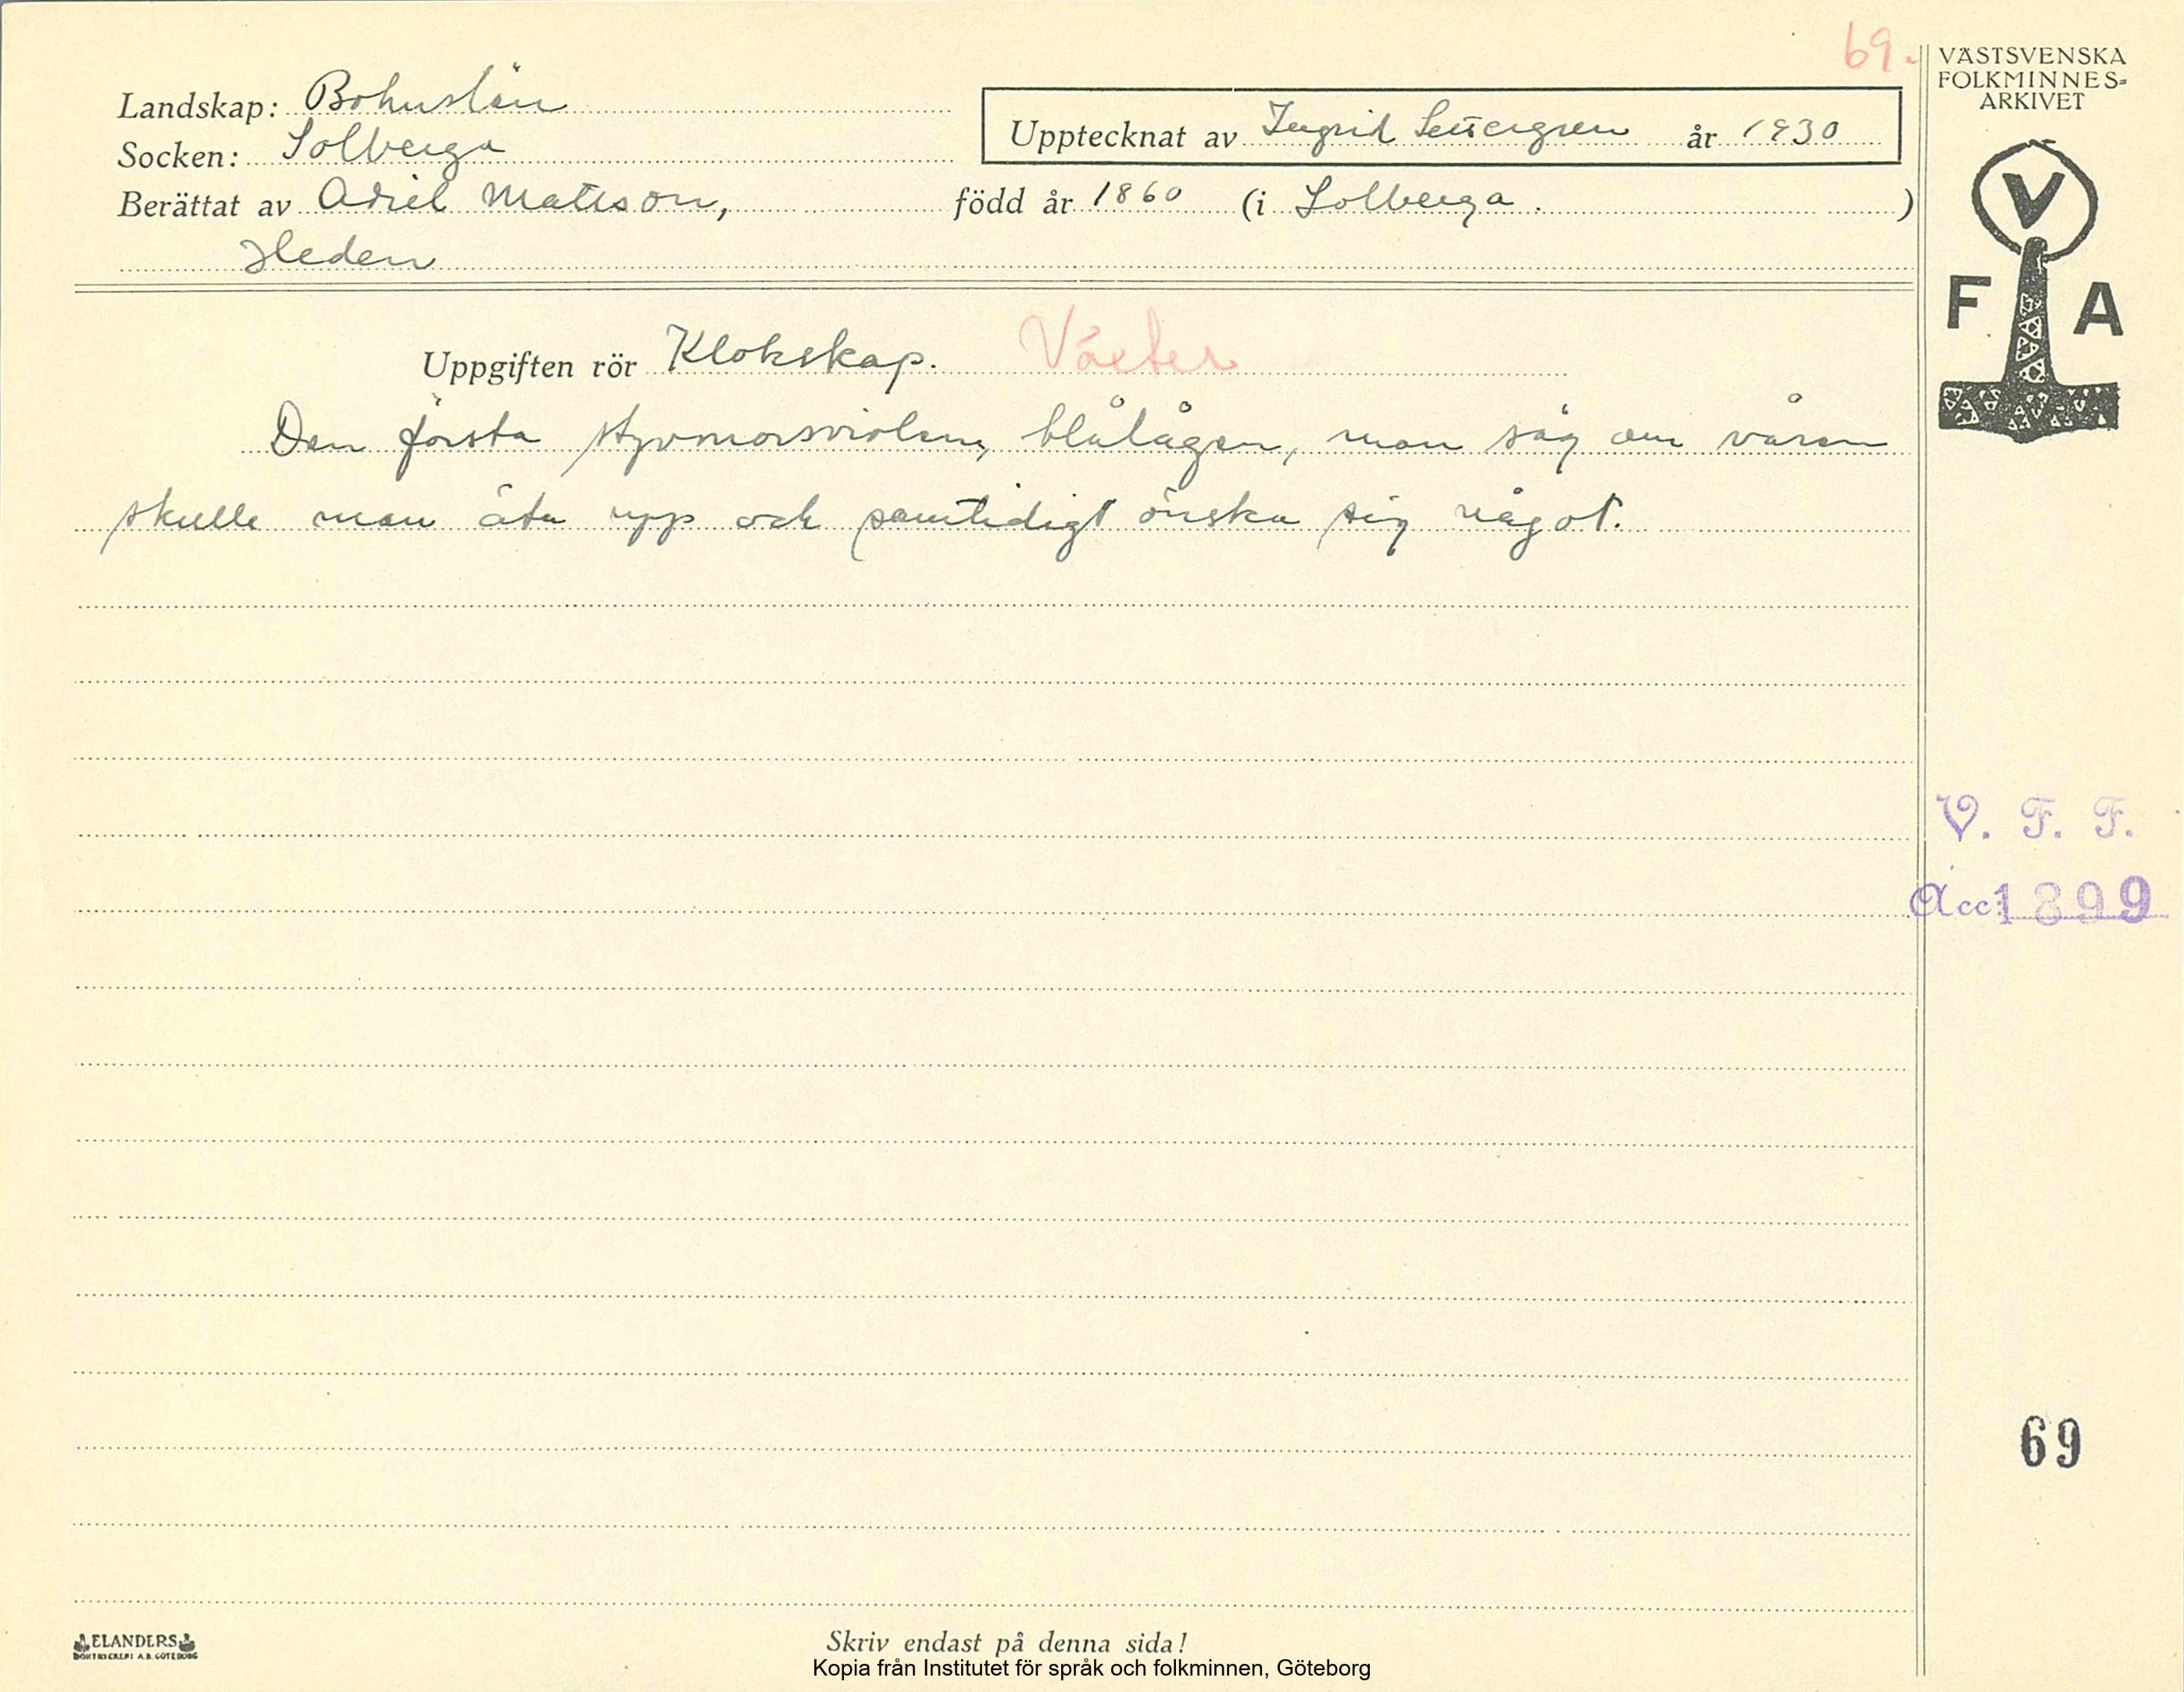 69.
VÄSTSVENSKA
FOLKMINNES-
ARKIVET
Landskap: Bohuslän
Upptecknat av Ingrid Settergren år 1930
Socken: Solberga
Berättat av Adiel Mattsson, född år 1860 (i Solberga.)
Heden
V
F A
Uppgiften rör Klokskap. Växter
Den första styvmorsviolen, blålågen, man såg om våren
skulle man äta upp och samtidigt önska sig något.
V. F. F.
Acc: 1899
69
ELANDERS
BOKTRYCKERI A.B. GÖTEBORG
Skriv endast på denna sida!
Kopia från Institutet för språk och folkminnen, Göteborg